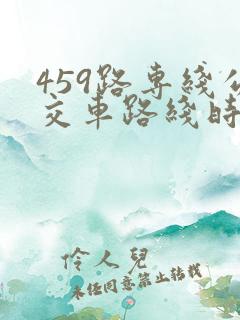 459路专綫公
交車路綫時
伶人兒
未经同意禁止转载